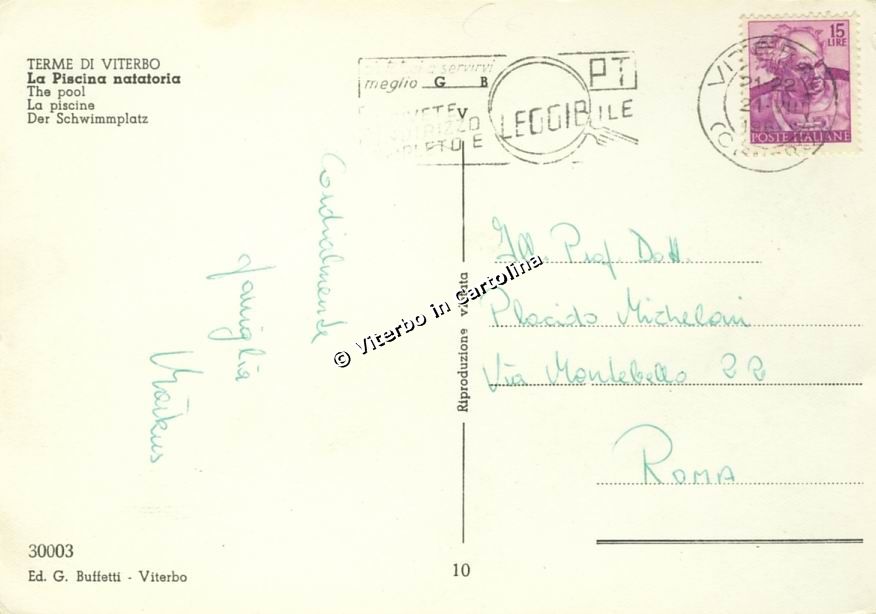 TERME DI VITERBO
La Piscina natatoria
The pool
La piscine
Der Schwimmplatz
servirvi
meglio G B
V
E
LEGGIBILE
PT
VITERBO
21-22
15
LIRE
POSTE ITALIANE
Cordialmente
famiglia
Markus
© Viterbo in Cartolina
Riproduzione vietata
Ill. Prof. Dott.
Placido Micheloni
Via Montebello 22
ROMA
30003
Ed. G. Buffetti - Viterbo
10